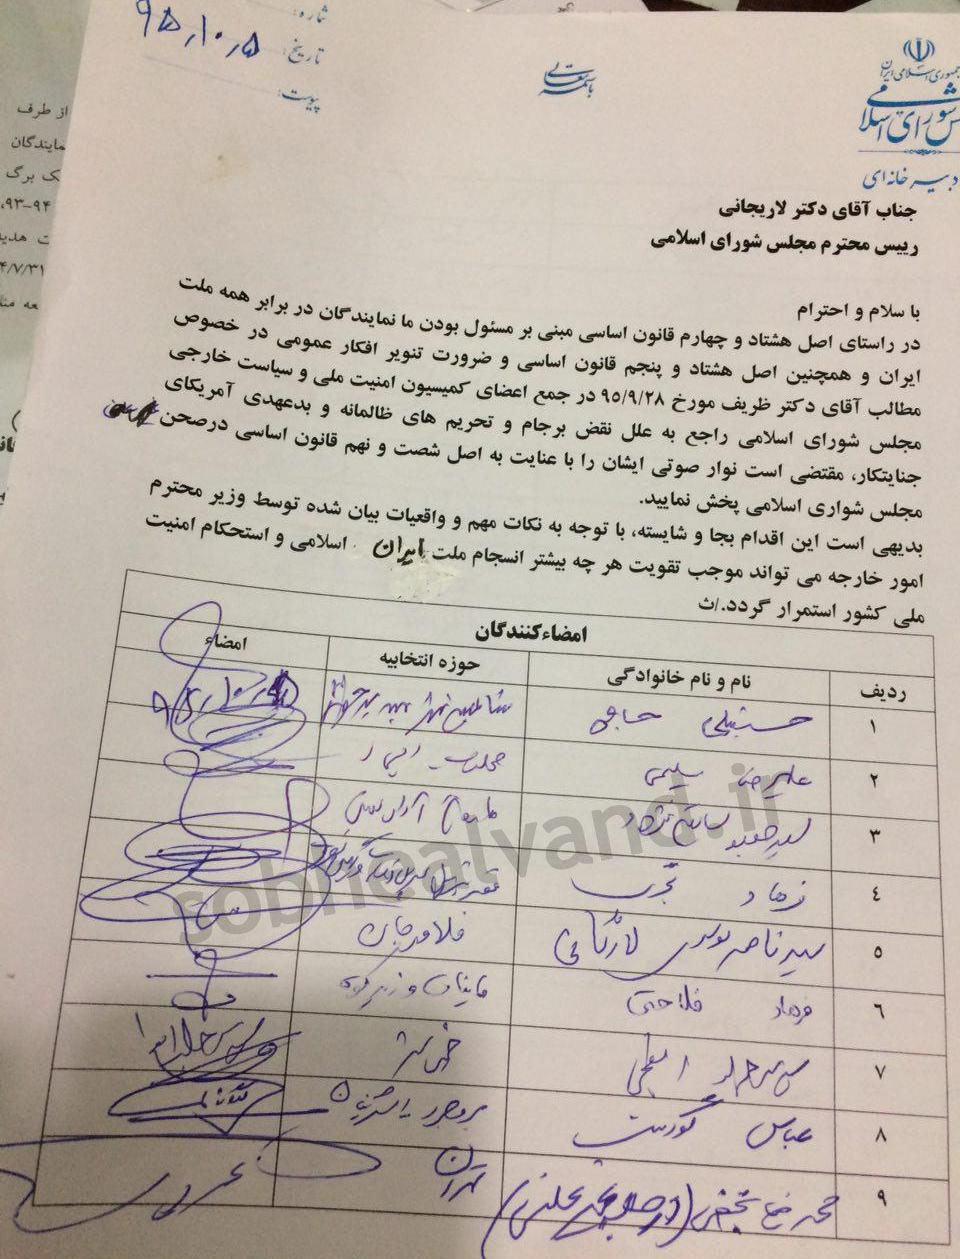 جمهوری اسلامی ایران
شورای اسلامی
دبیرخانه‌ای
باسمه تعالی
شماره:
تاریخ: ۹۵٫۱۰٫۵
پیوست:
از طرف
نمایندگان
ک برگ
۹۳-۹۴
جناب آقای دکتر لاریجانی
رییس محترم مجلس شورای اسلامی
با سلام و احترام
در راستای اصل هشتاد و چهارم قانون اساسی مبنی بر مسئول بودن ما نمایندگان در برابر همه ملت
ایران و همچنین اصل هشتاد و پنجم قانون اساسی و ضرورت تنویر افکار عمومی در خصوص
مطالب آقای دکتر ظریف مورخ ۹۵/۹/۲۸ در جمع اعضای کمیسیون امنیت ملی و سیاست خارجی
مجلس شورای اسلامی راجع به علل نقض برجام و تحریم های ظالمانه و بدعهدی آمریکای
جنایتکار، مقتضی است نوار صوتی ایشان را با عنایت به اصل شصت و نهم قانون اساسی درصحن علنی
مجلس شواری اسلامی پخش نمایید.
بدیهی است این اقدام بجا و شایسته، با توجه به نکات مهم و واقعیات بیان شده توسط وزیر محترم
امور خارجه می تواند موجب تقویت هر چه بیشتر انسجام ملت ایران اسلامی و استحکام امنیت
ملی کشور استمرار گردد./ث
امضاءکنندگان
ردیف نام و نام خانوادگی حوزه انتخابیه امضاء
۱ حسینعلی حاجی شاهین شهر میمه ۹۵٫۱۰٫۵
۲ علیرضا سلیمی محلات
۳ سید جواد ساداتی نژاد کاشان آران بیدگل
۴ فرهاد تجری قصرشیرین سرپل ذهاب و گیلانغرب
۵ سید ناصر موسوی لارگانی فلاورجان
۶ فرهاد فلاحتی قاینات و زیرکوه
۷ خمینی شهر
۸ عباس گودرزی بروجرد اشترینان
۹ تهران
sobhealvand.ir